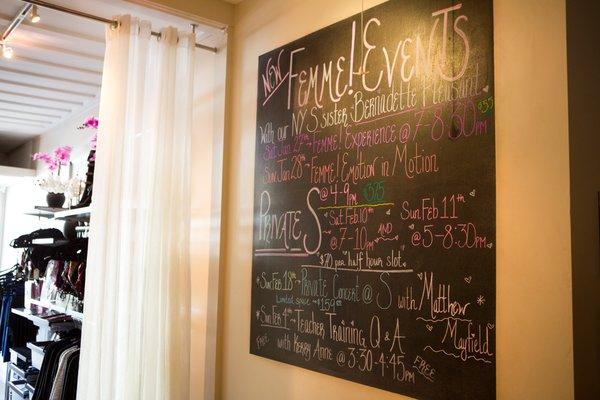 NEW Femme! Events
With our NY S sister Bernadette Pleasant
Sat Jan 27th Femme! Experience @ 7-8:30pm $55
Sun Jan 28th Femme! Emotion in Motion
@ 4-9pm $325
Private S
Sat Feb 10th
@ 7-10pm
AND
Sun Feb 11th
@ 5-8:30pm
$70 per half hour slot
Sun Feb 18th Private Concert @ S with Matthew Mayfield
Limited space
Sun Feb 4th Teacher Training Q & A
Free with Kerry Anne @ 3:30-4:45pm FREE